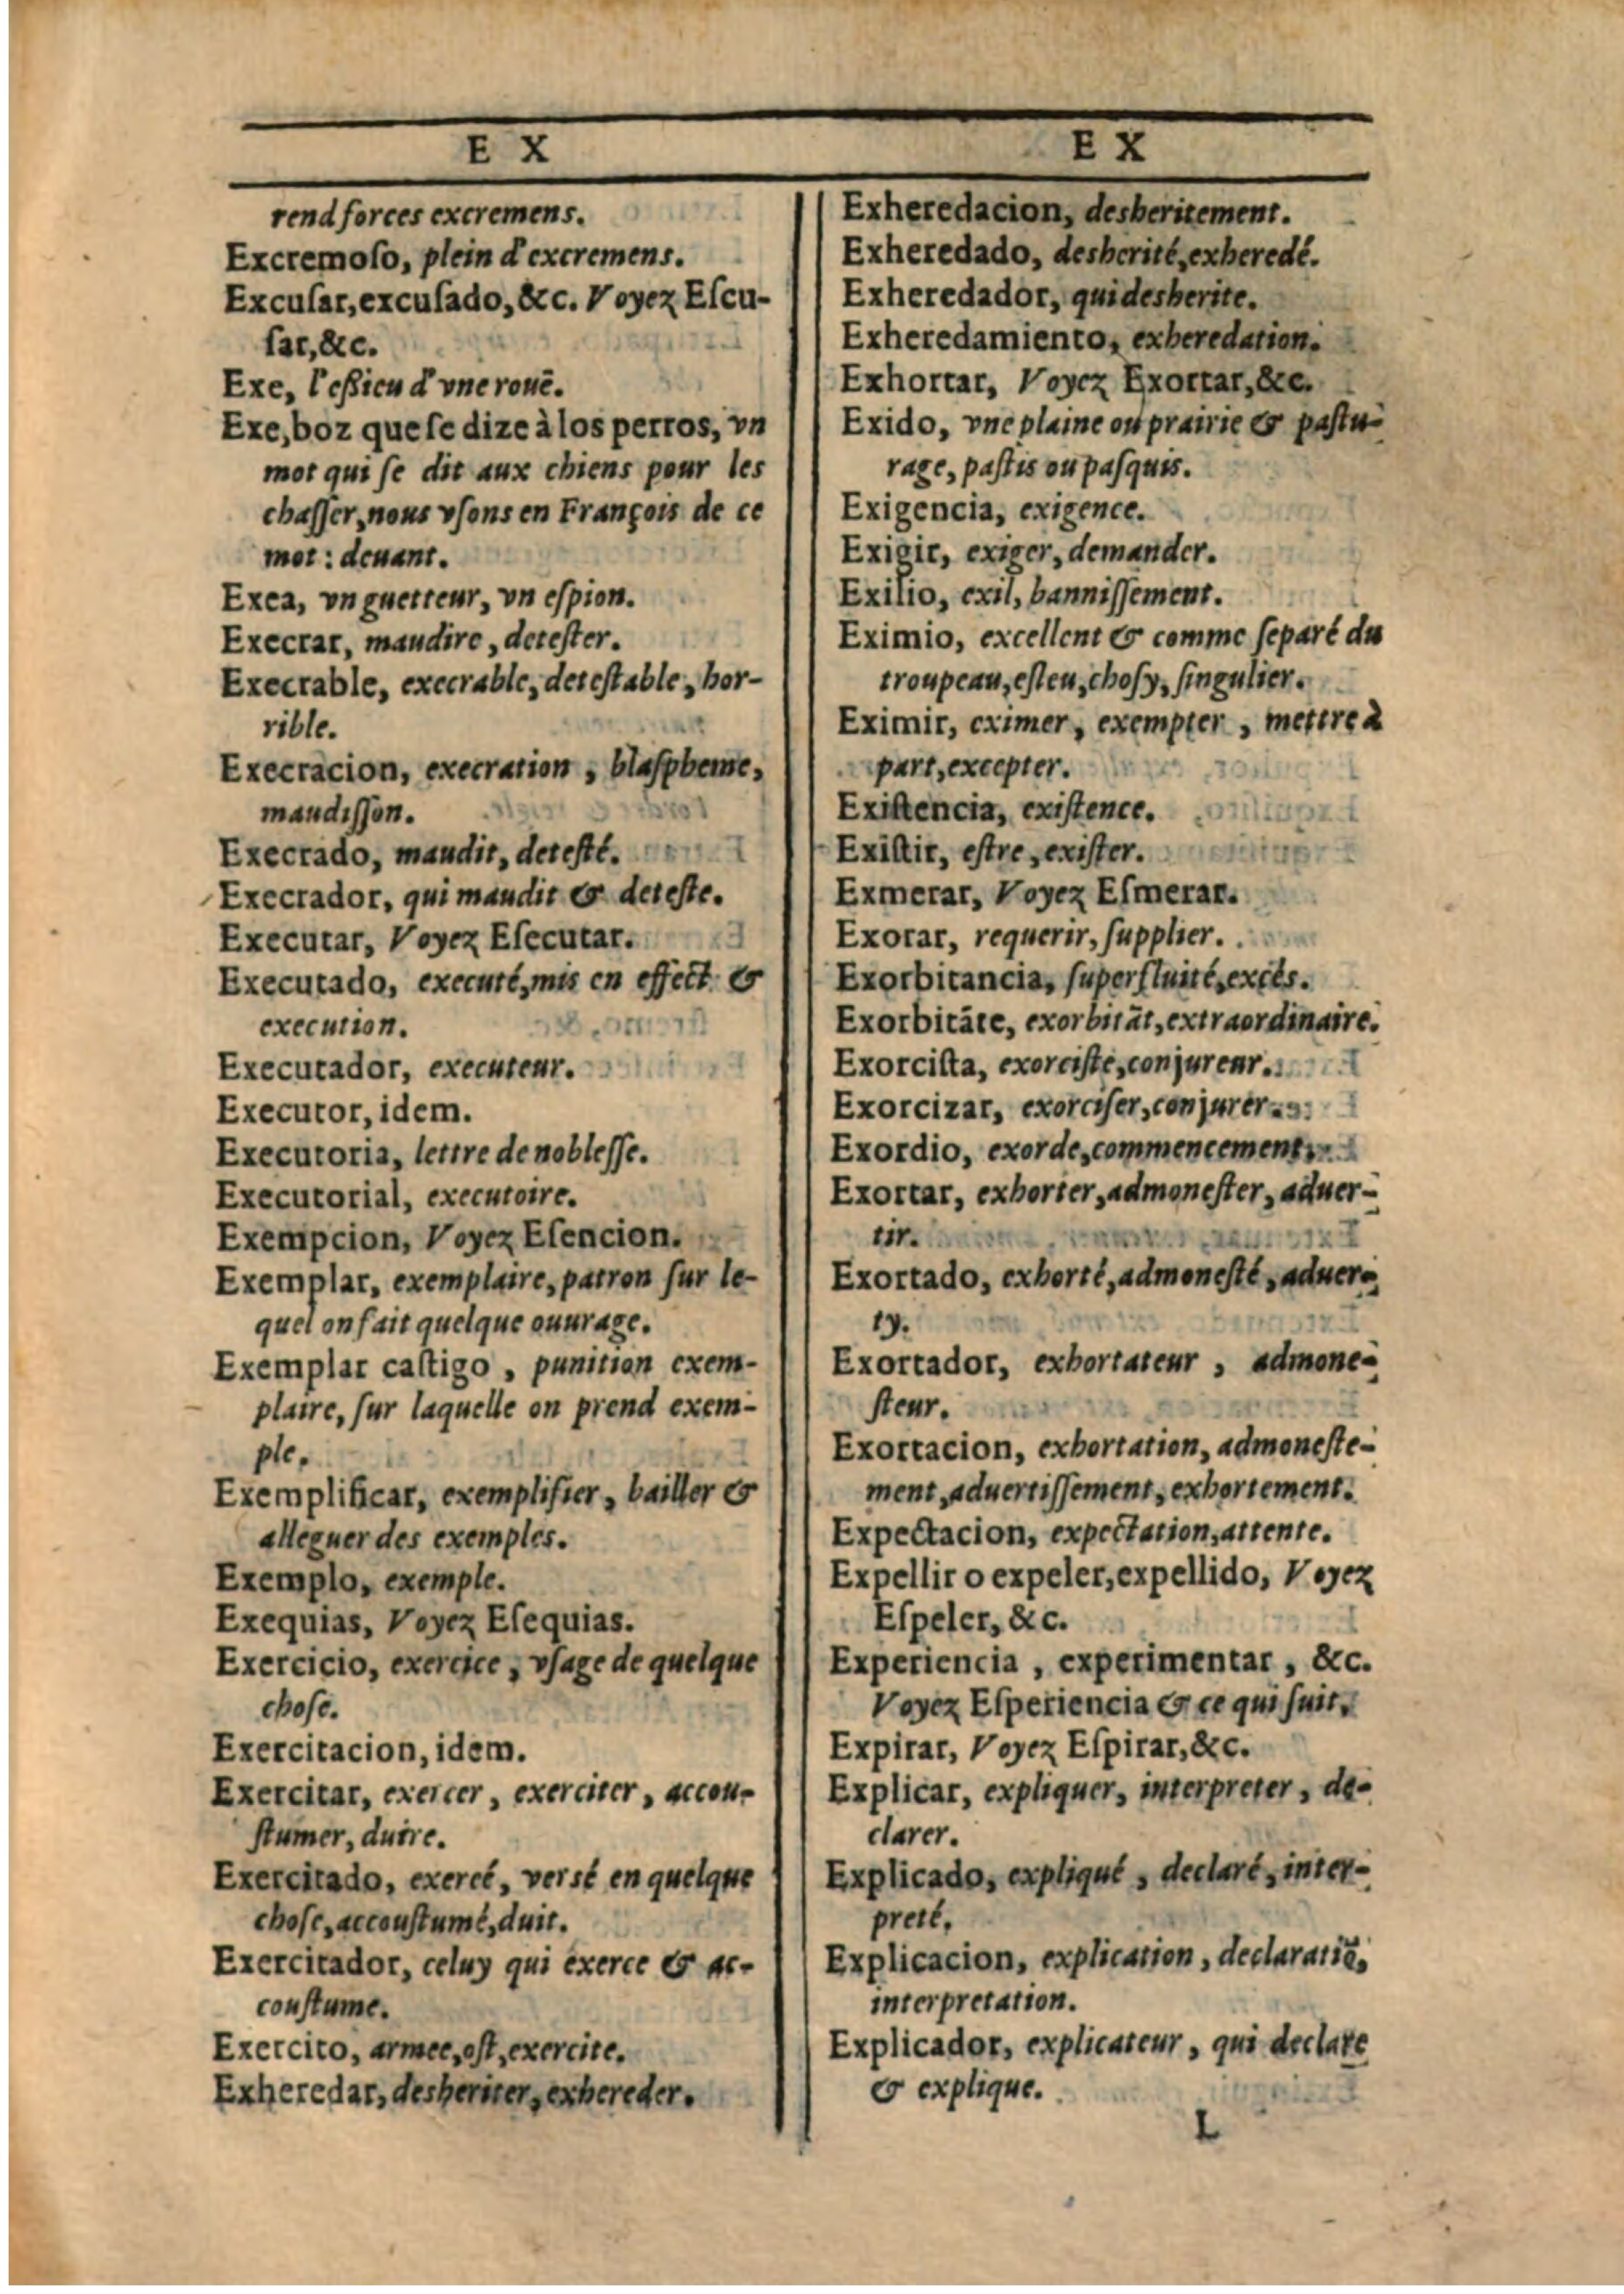 E X
rend forces excremens.
Excremoſo, plein d'excremens.
Excuſar,excuſado,&c. Voyez Eſcu-
ſar,&c.
Exe, l'eßieu d'vne rouë.
Exe,boz que ſe dize à los perros, vn
mot qui ſe dit aux chiens pour les
chaſſer,nous vſons en François de ce
mot : deuant.
Exea, vn guetteur, vn eſpion.
Execrar, maudire, deteſter.
Execrable, execrable, deteſtable, hor-
rible.
Execracion, execration, blaſpheme,
maudiſſon.
Execrado, maudit, deteſté.
Execrador, qui maudit & deteſte.
Executar, Voyez Eſecutar.
Executado, executé,mis en effect &
execution.
Executador, executeur.
Executor, idem.
Executoria, lettre de nobleſſe.
Executorial, executoire.
Exempcion, Voyez Eſencion.
Exemplar, exemplaire, patron ſur le-
quel on fait quelque ouurage.
Exemplar caſtigo, punition exem-
plaire, ſur laquelle on prend exem-
ple.
Exemplificar, exemplifier, bailler &
alleguer des exemples.
Exemplo, exemple.
Exequias, Voyez Eſequias.
Exercicio, exercice, vſage de quelque
choſe.
Exercitacion, idem.
Exercitar, exercer, exerciter, accou-
ſtumer, duire.
Exercitado, exercé, verſé en quelque
choſe,accouſtumé,duit.
Exercitador, celuy qui exerce & ac-
couſtume.
Exercito, armee,oſt,exercite.
Exheredar, desheriter, exhereder.
E X
Exheredacion, desheritement.
Exheredado, desherité,exheredé.
Exheredador, qui desherite.
Exheredamiento, exheredation.
Exhortar, Voyez Exortar,&c.
Exido, vne plaine ou prairie & paſtu-
rage, paſtis ou paſquis.
Exigencia, exigence.
Exigir, exiger, demander.
Exilio, exil, banniſſement.
Eximio, excellent & comme ſeparé du
troupeau,eſleu,choſy, ſingulier.
Eximir, eximer, exempter, mettre à
part,excepter.
Exiſtencia, exiſtence.
Exiſtir, eſtre, exiſter.
Exmerar, Voyez Eſmerar.
Exorar, requerir, ſupplier.
Exorbitancia, ſuperfluité,excès.
Exorbitāte, exorbitāt,extraordinaire.
Exorciſta, exorciſte,conjureur.
Exorcizar, exorciſer,conjurer.
Exordio, exorde,commencement.
Exortar, exhorter,admoneſter, aduer-
tir.
Exortado, exhorté,admoneſté, aduer-
ty.
Exortador, exhortateur, admone-
ſteur.
Exortacion, exhortation, admoneſte-
ment,aduertiſſement, exhortement.
Expectacion, expectation,attente.
Expellir o expeler,expellido, Voyez
Eſpeler, &c.
Experiencia, experimentar, &c.
Voyez Eſperiencia & ce qui ſuit.
Expirar, Voyez Eſpirar,&c.
Explicar, expliquer, interpreter, de-
clarer.
Explicado, expliqué, declaré, inter-
preté.
Explicacion, explication, declaratiō,
interpretation.
Explicador, explicateur, qui declare
& explique.
L